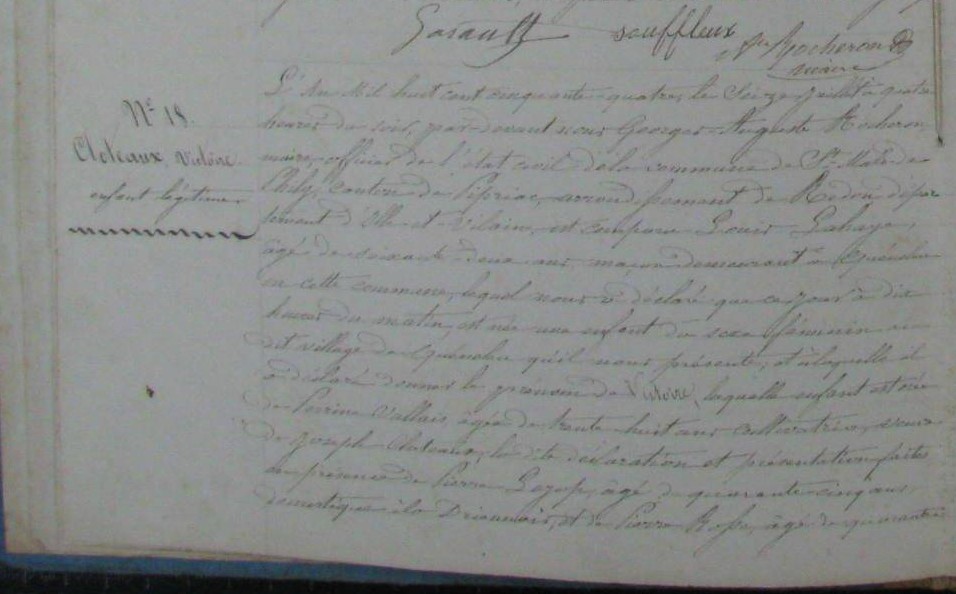 Garault souffleux Rocheron
maire
L'An Mil huit cent cinquante-quatre, le Seize juillet à quatre
N° 18.
heures du soir, par-devant nous Georges-Auguste Rocheron
Cloteaux Victoire
maire, officier de l'état civil de la commune de St Malo de
enfant légitime
Phily, canton de Pipriac, arrondissement de Redon dépar
tement d'Ille-et-Vilaine, est comparu Louis Lahaye,
âgé de soixante-deux ans, maçon demeurant à
en cette commune, lequel nous a déclaré que ce jour à dix
heures du matin, est née une enfant du sexe féminin au
dit village de qu'il nous présente, et à laquelle il
a déclaré donner le prénom de Victoire, laquelle enfant est née
de Perrine Vallais âgée de trente-huit ans cultivatrice, veuve
de Joseph Cloteaux, la dite déclaration et présentation faites
en présence de Pierre âgé de quarante-cinq ans,
domestique à la et de Pierre âgé de quarante